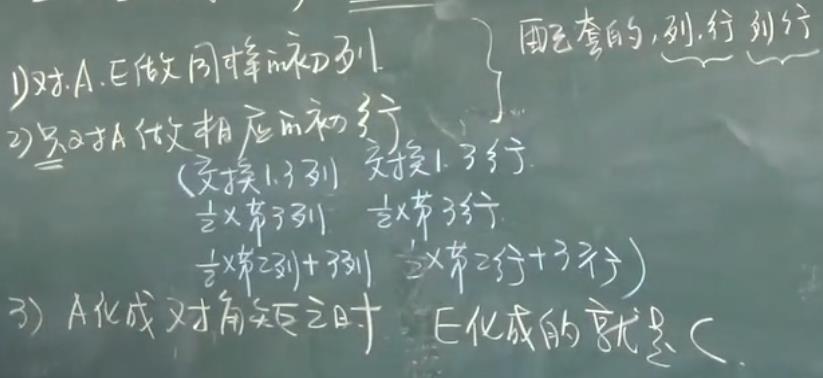 1) 对A.E做同样的初列
配套的,列.行 列行
2) 只对A做相应的初行
(交换1.3列 交换1.3行.
1/2×第3列 1/2×第3行.
1/2×第2列+3列 1/2×第2行+3行)
3) A化成对角矩阵时 E化成的就是C.